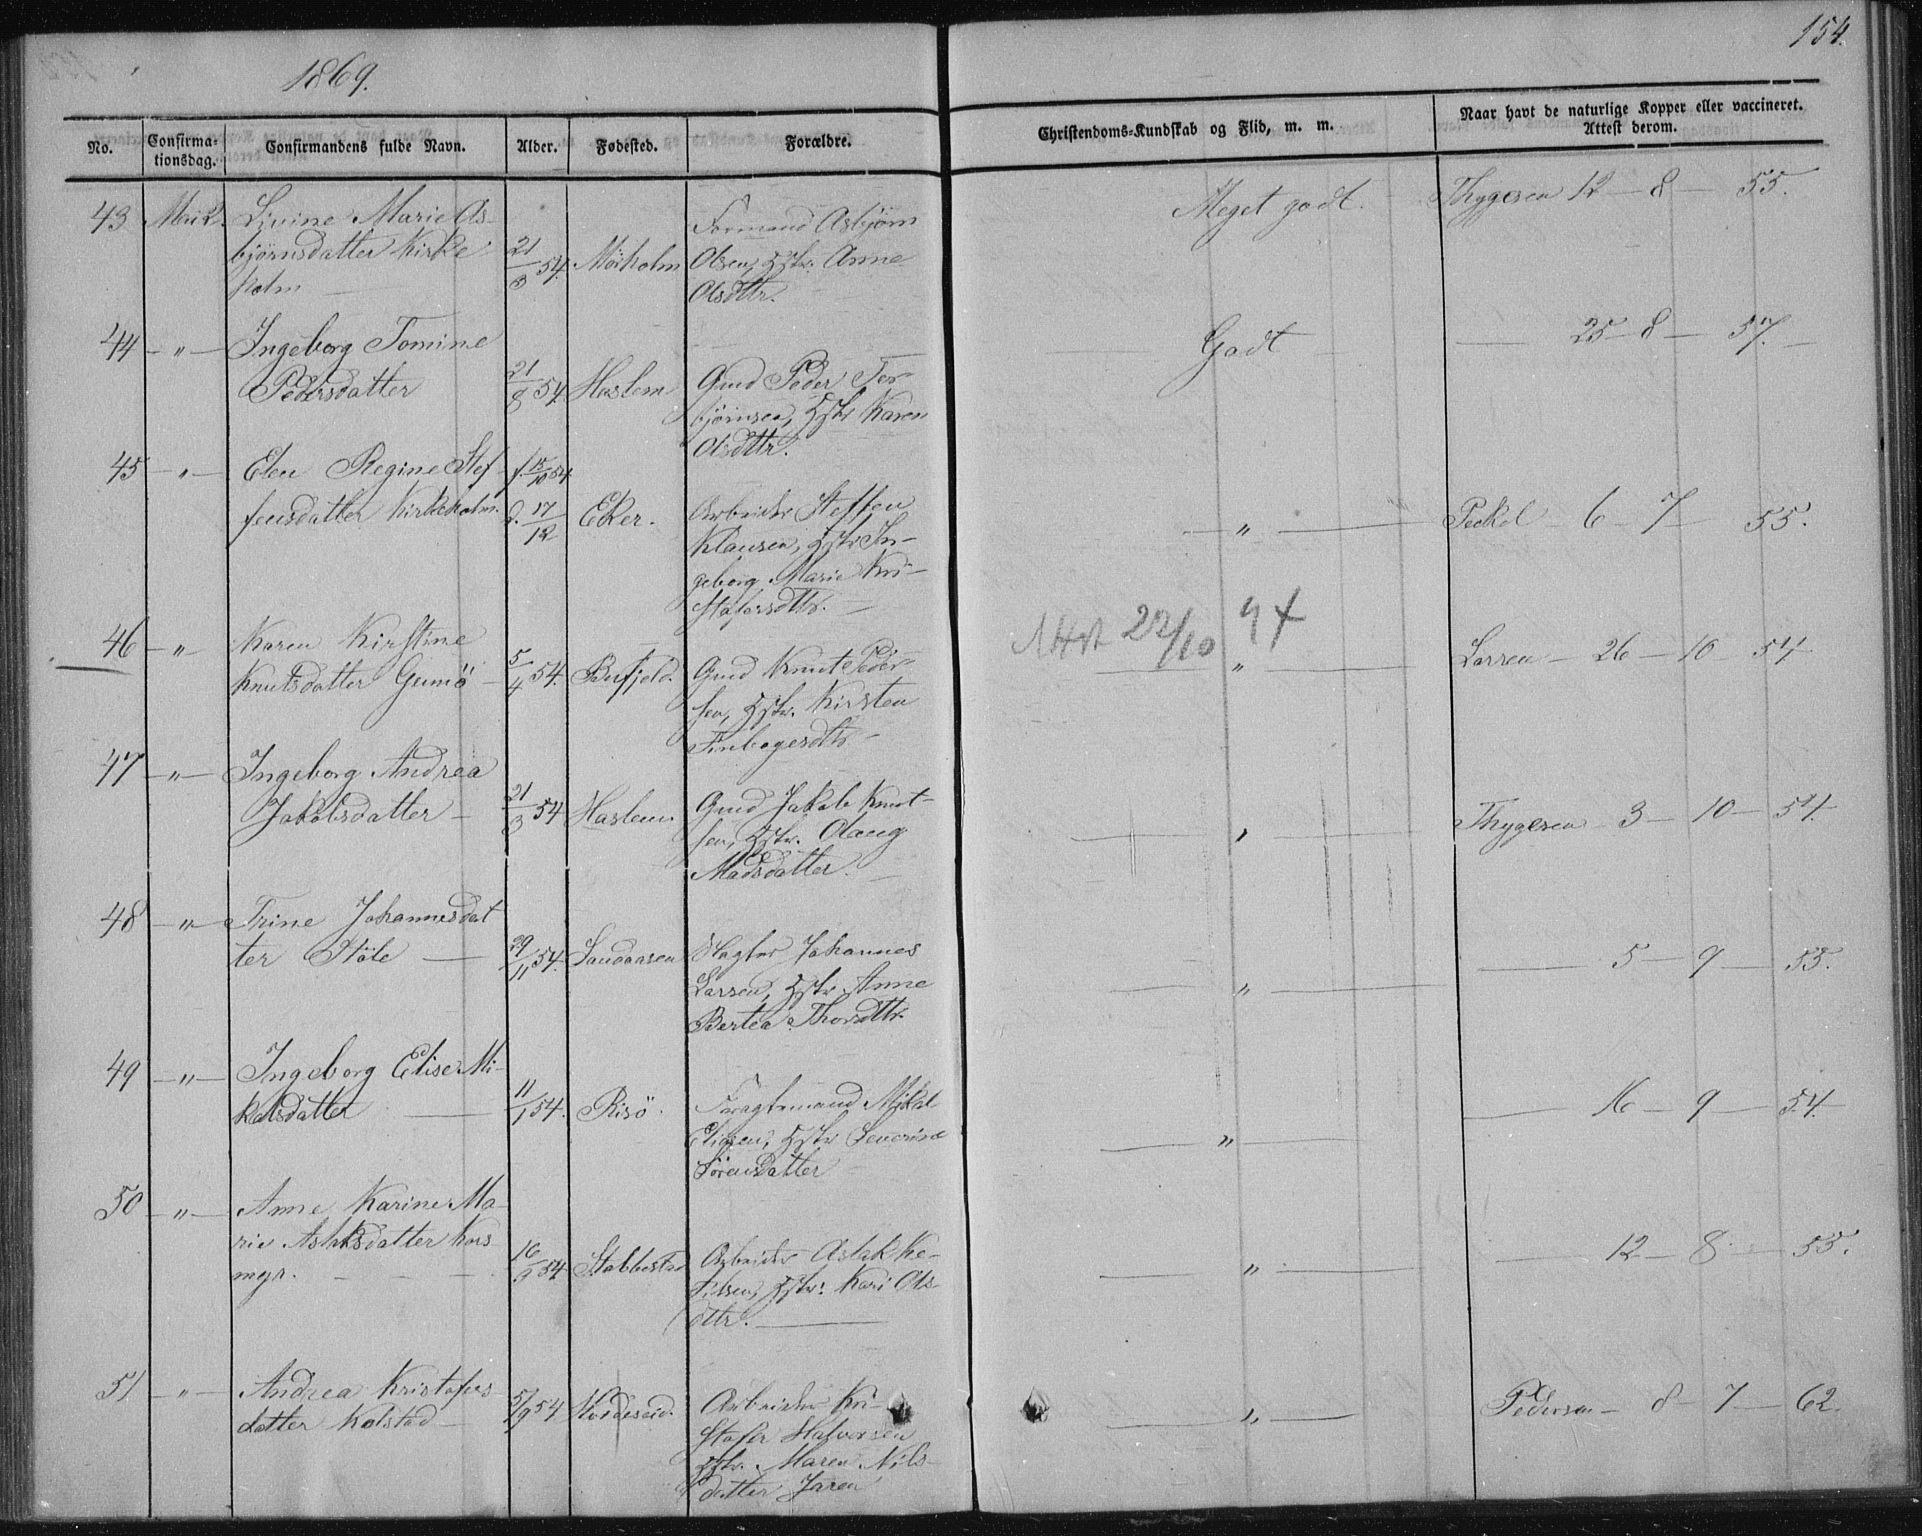 154.
1869.
No.
Confirma-
tionsdag.
Confirmandens fulde Navn.
Alder.
Fødested.
Forældre.
Christendoms-Kundskab og Flid, m. m.
Naar havt de naturlige Kopper eller vaccineret.
Attest derom.
43 Mai 2. Livine Marie As-
bjørnsdatter Kirke
holm
21/3 54. Mörholm
Formand Asbjørn
Olsen, Hstr. Anne
Olsdttr.
Meget godt. Thygesen 12 - 8 - 55.
44 - " - Ingeborg Tomine
Pedersdatter
21/8 54 Haslem
Gmd Peder Ter-
bjørnsen, Hstr Karen
Olsdttr.
Godt 25 - 8 - 57.
45 - " - Elen Regine Stef
fensdatter Kirkeholm.
f. 15/10 54
d. 17/12 Eker.
Arbeider Steffen
Klausen, Hstr In-
geborg Marie Kri-
stofersdttr.
" Peckel 6 - 7 - 55.
46 " Karen Kirstine
Knutsdatter Gumö
5/4 54. Bufjeld.
Gmd Knut Peder-
sen, Hstr. Kirsten
Finbogesdttr
Attst 22/10 94
" Larsen - 26 - 10 - 54
47 - " - Ingeborg Andrea
Jakobsdatter -
21/3 54 Haslem
Gmd Jakob Knut-
sen, Hstr. Olaug
Madsdatter.
" Thygesen 3 - 10 - 54.
48 - " - Trine Johannesdat
ter Støle
29/11 54. Sandaasen
Johannes
Larsen, Hstr Anne
Bertea Thorsdttr.
" 5 - 9 - 55.
49 - " - Ingeborg Elise Mi-
kalsdatter
11/1 54. Risö.
Mikal
Eliasen, Hstr Severine
Sörensdatter
" 16 - 9 - 54.
50 - " - Anne Karine Ma-
rie Aslaksdatter Kors
myr.
16/9 54 Stabbestad
Arbeider Aslak Ke-
tilsen, Hstr: Kari Ols-
dttr.
" 12 - 8 - 55.
51 - " - Andrea Kristofers
datter Kolstad
5/9 54
Arbeider Kri-
stofer Halvorsen
Hstr. Maren Nils-
datter Jaren
" Pedersen - 8 - 7 - 62.